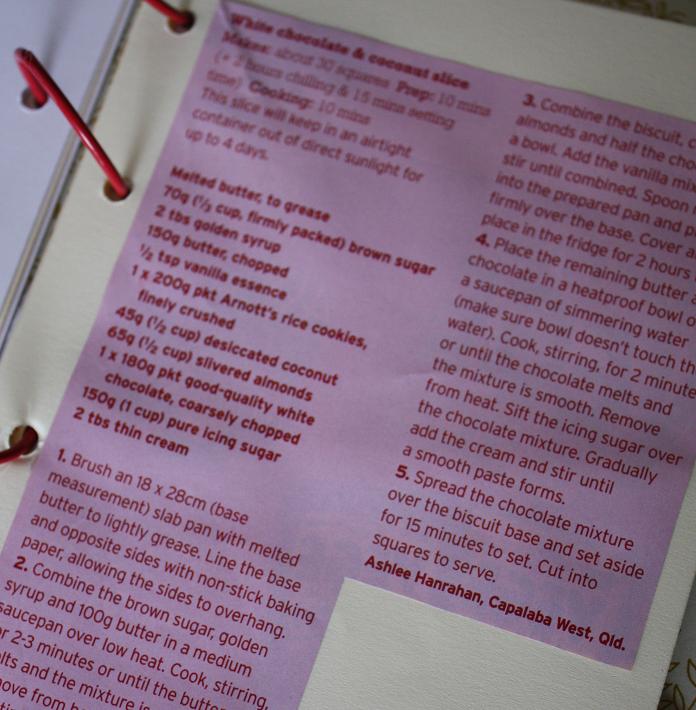 White chocolate & coconut slice
Makes: about 30 squares Prep: 10 mins
(+ 2 hours chilling & 15 mins setting
time) Cooking: 10 mins
This slice will keep in an airtight
container out of direct sunlight for
up to 4 days.
Melted butter, to grease
70g (⅓ cup, firmly packed) brown sugar
2 tbs golden syrup
150g butter, chopped
½ tsp vanilla essence
1 x 200g pkt Arnott's rice cookies,
finely crushed
45g (½ cup) desiccated coconut
65g (½ cup) slivered almonds
1 x 180g pkt good-quality white
chocolate, coarsely chopped
150g (1 cup) pure icing sugar
2 tbs thin cream
1. Brush an 18 x 28cm (base
measurement) slab pan with melted
butter to lightly grease. Line the base
and opposite sides with non-stick baking
paper, allowing the sides to overhang.
2. Combine the brown sugar, golden
syrup and 100g butter in a medium
saucepan over low heat. Cook, stirring,
2-3 minutes or until the butter
and the mixture is
from
3. Combine the biscuit,
almonds and half the
a bowl. Add the vanilla
stir until combined. Spoon
into the prepared pan and
firmly over the base. Cover
place in the fridge for 2 hours
4. Place the remaining butter
chocolate in a heatproof bowl
a saucepan of simmering water
(make sure bowl doesn't touch
water). Cook, stirring, for 2 minute
or until the chocolate melts and
the mixture is smooth. Remove
from heat. Sift the icing sugar over
the chocolate mixture. Gradually
add the cream and stir until
a smooth paste forms.
5. Spread the chocolate mixture
over the biscuit base and set aside
for 15 minutes to set. Cut into
squares to serve.
Ashlee Hanrahan, Capalaba West, Qld.